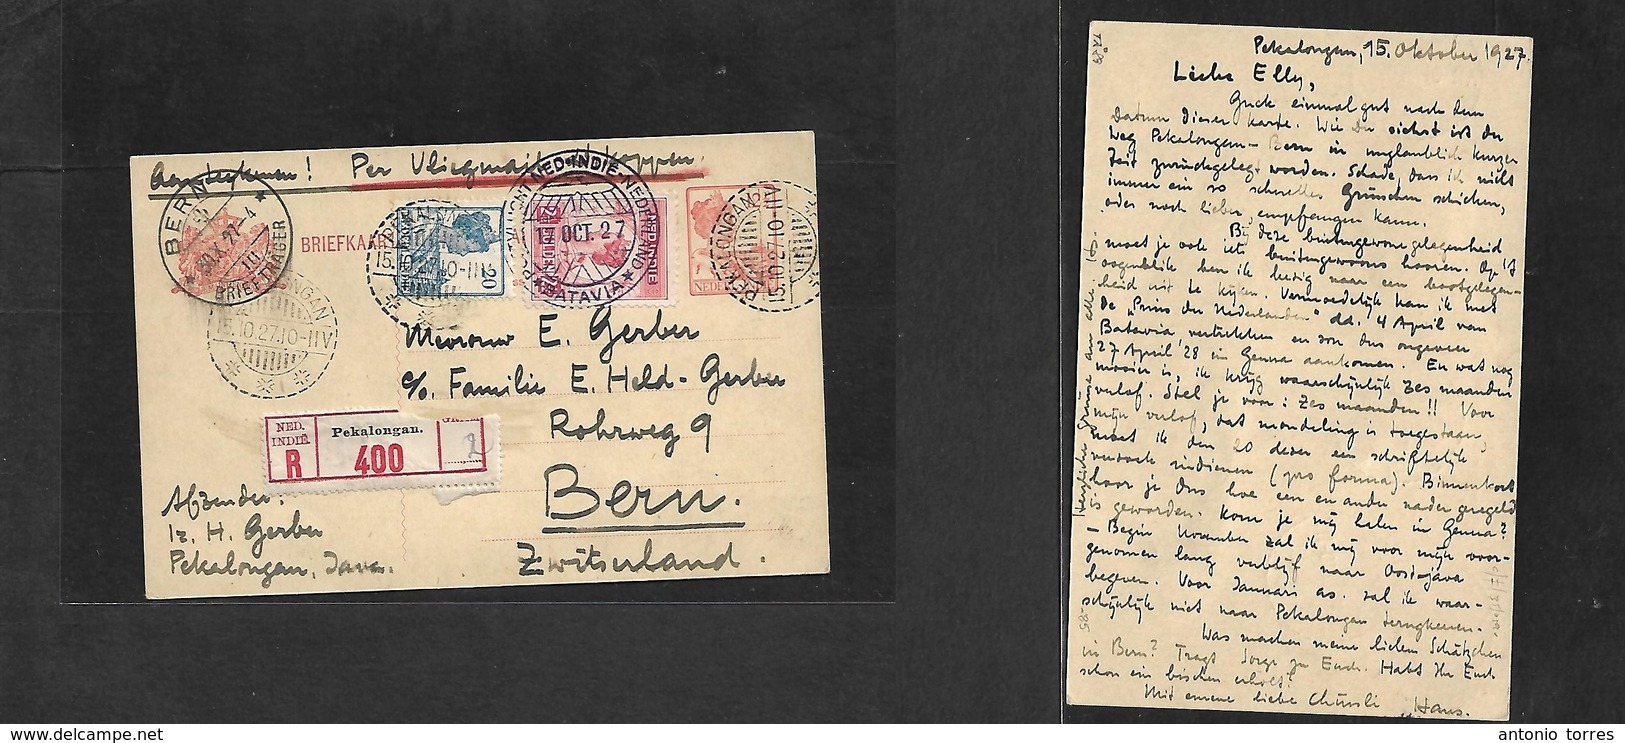 Aantekenen! Per Vliegmail
BRIEFKAART
BERN
BRIEFTRÄGER
PEKALONGAN
15.10.27.10-11V
20
NED-INDIE-NEDERLAND
17 OCT.27
BATAVIA
PEKALONGAN
15.10.27.10-11V
NEDERL
PEKALONGAN
15.10.27.10-11V
Mevrouw E. Gerber
c/o Familie E. Held-Gerber
Rohrweg 9
Bern.
Zwitserland.
NED. INDIË
R
Pekalongan.
400
2
Afzender:
Iz. H. Gerber
Pekalongan, Java.
Pekalongan, 15. Oktober 1927.
Liebe Elly,
Guck einmal gut nach dem
Datum dieser Karte. Wie Du siehst ist der
Weg Pekalongan – Bern in unglaublich kurzer
Zeit zurückgelegt worden. Schade, dass ich nicht
immer ein so schnelles Grüsschen schicken,
oder noch lieber, empfangen kann.
Bij deze buitengewone gelegenheid
moet je ook iets buitengewoons hooren. Op 't
oogenblik ben ik bezig naar een bootgelegen-
heid uit te kijken. Vermoedelijk kan ik met
de "Prins der Nederlanden" dd. 4 April van
Batavia vertrekken en zou dus ongeveer
27 April '28 in Genua aankomen. En wat nog
mooier is, ik krijg waarschijnlijk zes maanden
verlof. Stel je voor: Zes maanden!! Voor
mijn verlof, dat mondeling is toegestaan,
moet ik den 20 dezer een schriftelijk
verzoek indienen (pro forma). Binnenkort
hoor je dus hoe een en ander nader geregeld
is geworden. Kom je mij halen in Genua?
– Begin November zal ik mij voor mijn voor-
genomen lang verblijf naar Oost-Java
begeven. Voor Januari as. zal ik waar-
schijnlijk niet naar Pekalongan terugkeeren.
Was machen meine lieben Schätzchen
in Bern? Tragt Sorge zu Euch. Habt Ihr Euch
schon ein bischen erholt?
Mit liebe Chüsli Hans.
Herzliche Grüsse an alle. Hs.
antonio torres